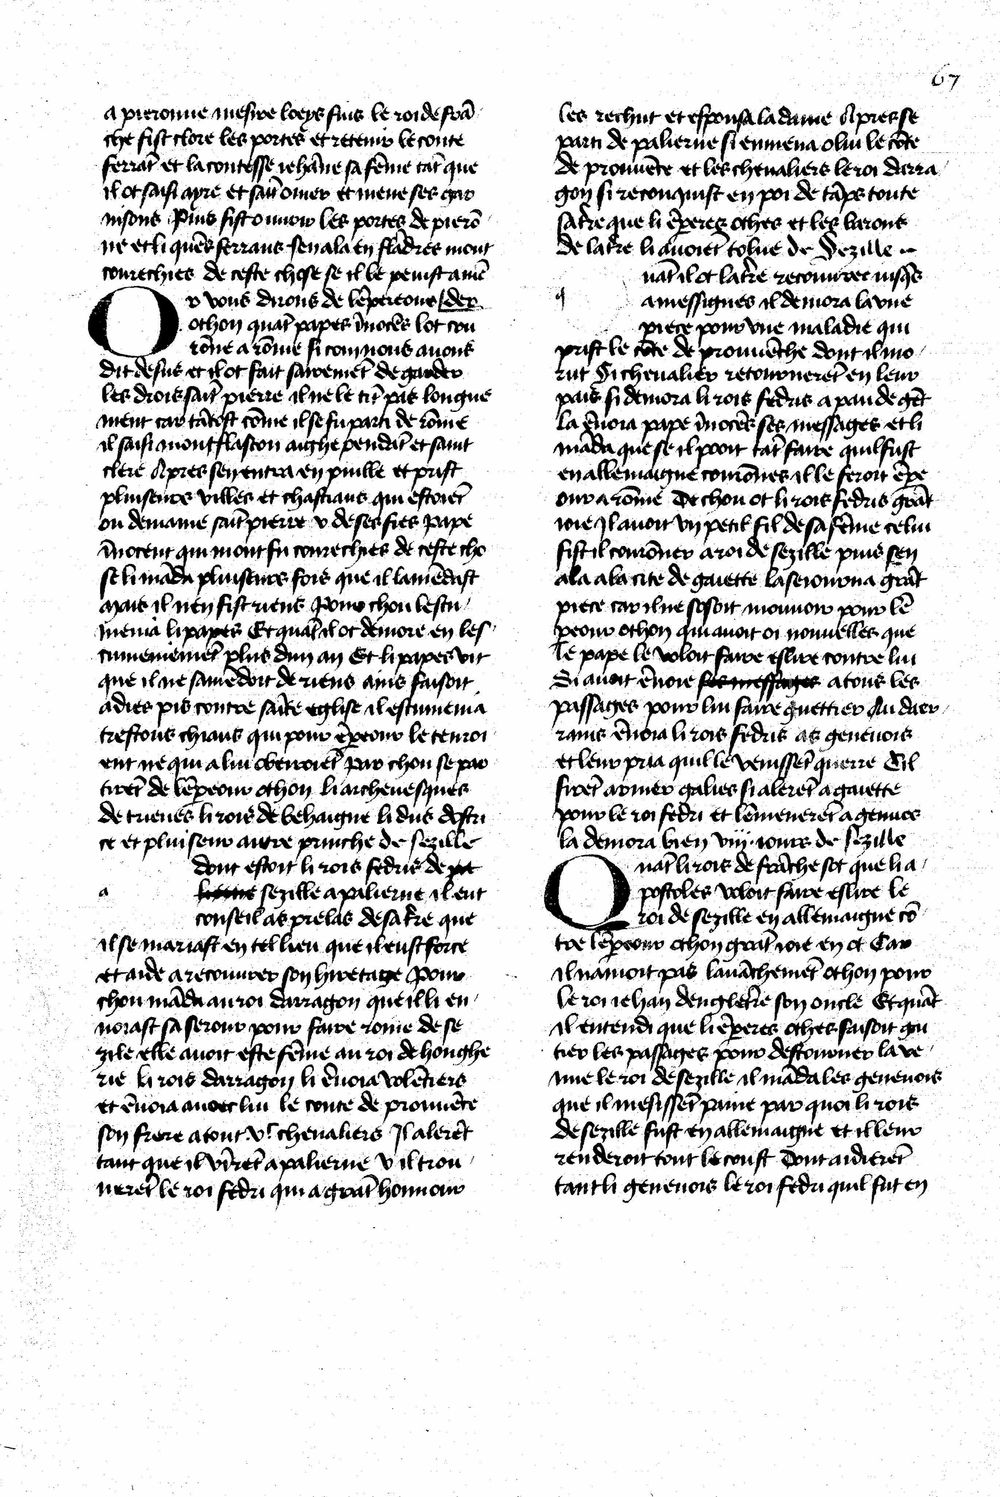 67
a pieronne mesire loeys fius le roi de frã
che fist clore les portes et retenir le conte
ferrãt et la contesse iehãne sa fẽme tãt que
il ot saisi ayre et sãit omer et mene ses gar
nisons Puis fist ouurir les portes de pierõ
ne et li quẽs ferrans sen ala en flãdres mout
courechies de ceste chose se il le peuist amẽ
Or vous dirons de lẽpereour der
othon quãt papes ĩnocẽs lot cou
rõne a rõme si com nous auons
dit desus et il ot fait sairemẽt de garder
les drois sãit pierre il ne le tĩt pas longue
ment car tãtost cõme il se fu parti de rõme
il saisi mont flascon aighe pendãt et saint
clere Apres sen entra en puille et prist
pluiseurs villes et chastiaus qui estoiẽt
ou demaine sãit pierre v de ses fies Pape
ĩnocent qui mout fu courechies de ceste cho
se li mãda pluiseurs fois que il lamẽdast
Mais il nen fist riens Pour chou lescu
menia li papes Et quãt il ot demore en les
cumeniemẽt plus dun an Et li papes vit
que il ne samẽdoit de riens ains faisoit
adies pis contre sãite eglise il escumenia
trestous chiaus qui pour ẽpeour le tenroi
ent ne qui a lui obeiroiẽt Par chou se par
tirẽt de lẽpeour othon li archeuesques
de trieues li rois de behaigne li dus dostri
ce et pluiseur autre prinche de Sezille
dont estoit li rois fedris de pa
lierne sezille a palierne il eut
a
conseil as prelas de sa tẽre que
il se mariast en tel lieu que il eust force
et aide a recouurer son hiretage Pour
chou mãda au roi darragon que il li en
uoiast sa serour pour faire roine de se
zile elle auoit este fẽme au roi de honghe
rie li rois darragon li ẽuoia volẽtiers
et ẽuoia auoec lui le conte de prouuẽce
son frere a tout .v.c cheualiers Il alerẽt
tant que il vĩrẽt a palierne v il trou
uerẽt le roi fedri qui a grãt honnour
les rechut et espousa la dame Apres se
parti de palierne si enmena o lui le cõte
de prouuẽce et les cheualiers le roi darra
gon si reconquist en poi de tãps toute
sa tẽre que li ẽperes othes et les barons
de la tẽre li auoiẽt tolue de Sezille
Quãt il ot la tẽre recouuree iusq̃s
q
a messignes il demora la vne
piece pour vne maladie qui
prist le cõte de prouuẽche dont il mo
rut Si cheualier retournerẽt en leur
pais si demora li rois fedris a pau de gẽt
La ẽuoia pape ĩnocẽs ses messages et li
mãda que se il pooit tãt faire quil fust
en allemaigne courõnes il le feroit ẽpe
our a rõme De chou ot li rois fedris grãt
ioie Il auoit vn petit fil de sa fẽme celui
fist il courõner a roi de sezille puis sen
ala a la cite de gaiette la seiourna grãt
piece car il ne sosoit mouuoir pour lẽ
peour othon qui auoit oi nouuelles que
le pape le voloit faire eslire contre lui
Si auoit ẽuoie ses messages a tous les
passages pour lui faire guettier Au daer
rains ẽuoia li rois fedris as geneuois
et leur pria quil le venissẽt querre Cil
firẽt armer galies si alerẽt a gaiette
pour le roi fedri et lẽmenerẽt a genues
la demora bien viij. iours de Sezille
Quãt li rois de frãche sot que li a
postoles voloit faire eslire le
roi de sezille en allemaigne cõ
tre lẽpeour othon grãt ioie en ot Car
il namoit pas lauãchemẽt othon pour
le roi iehan dengletẽre son oncle Et quãt
il entendi que li ẽperes othes faisoit gai
tier les passages pour destourner la ve
nue le roi de sezille il mãda les geneuois
que il mesissẽt paine par quoi li rois
de sezille fust en allemaigne et il leur
renderoit tout le coust Dont aidierẽt
tant li geneuois le roi fedri quil fut en